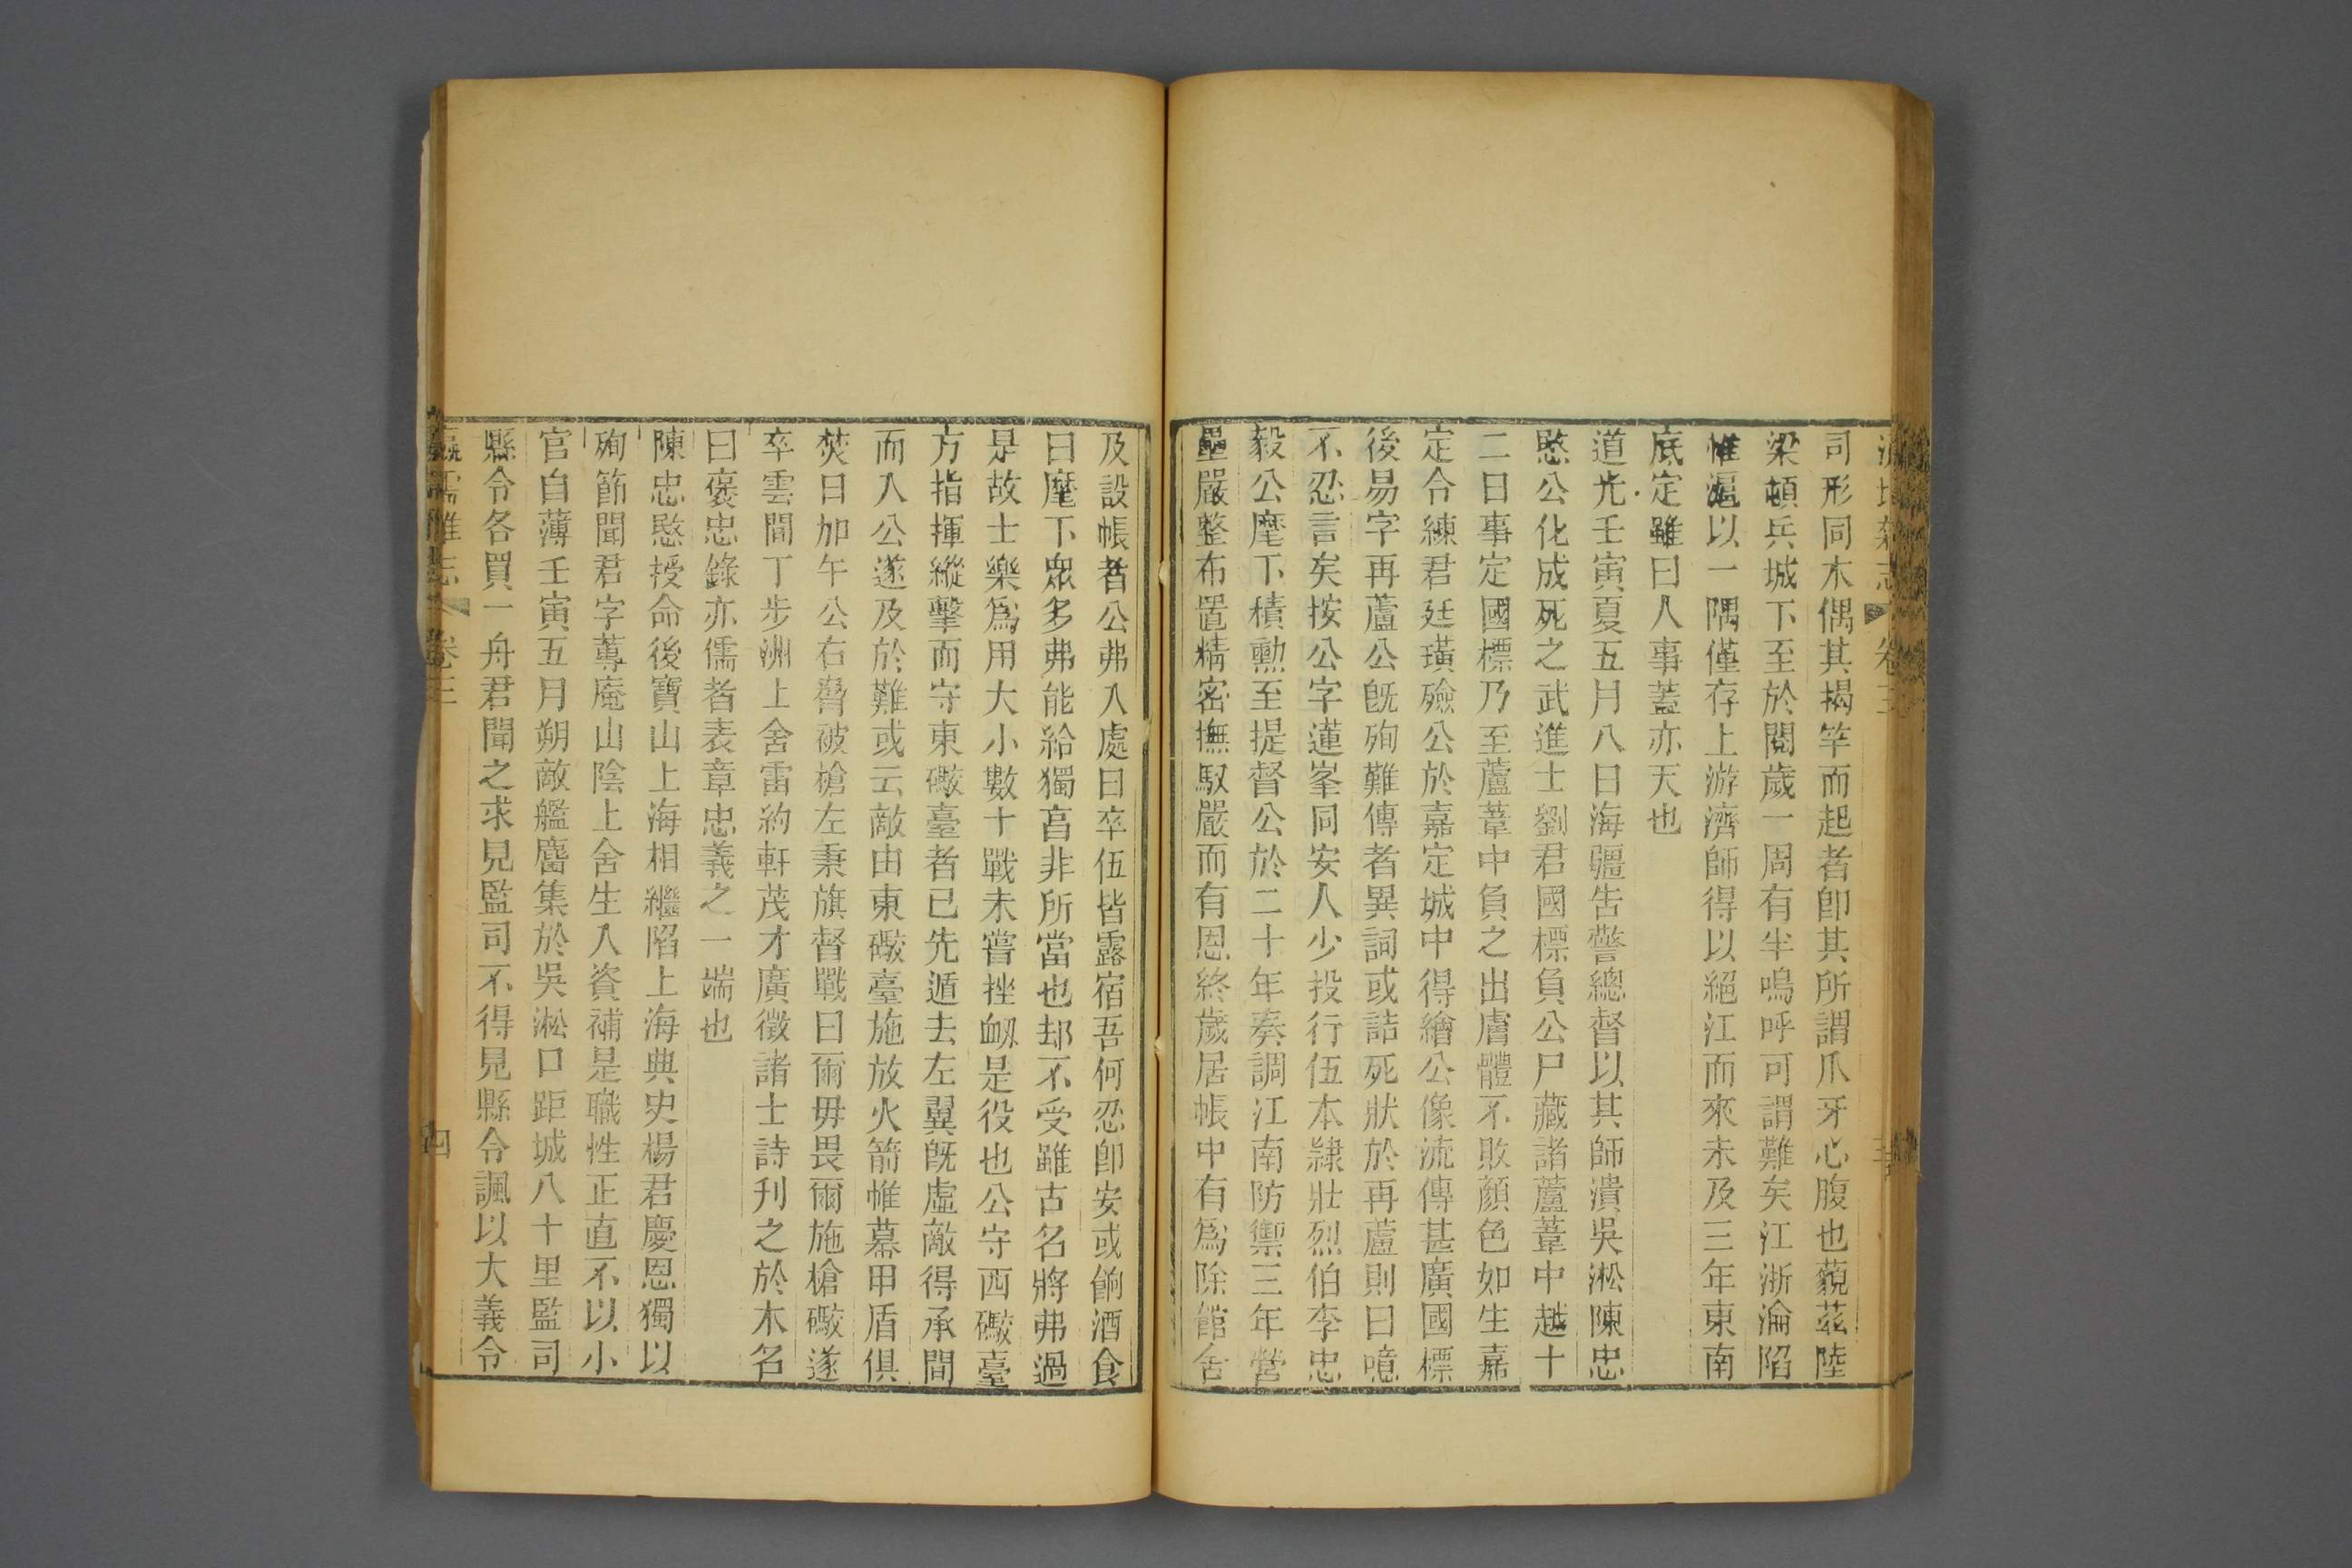 卷三
司形同木偶其揭竿而起者卽其所謂爪牙心腹也藐茲陸
梁頓兵城下至於閱歲一周有半嗚呼可謂難矣江浙淪陷
惟滬以一隅僅存上游濟師得以絕江而來未及三年東南
底定雖曰人事蓋亦天也
道光壬寅夏五月八日海疆告警總督以其師潰吳淞陳忠
愍公化成死之武進士劉君國標負公尸藏諸蘆葦中越十
二日事定國標乃至蘆葦中負之出膚體不敗顏色如生嘉
定令練君廷璜殮公於嘉定城中得繪公像流傳甚廣國標
後易字再蘆公旣殉難傳者異詞或詰死狀於再蘆則曰噫
不忍言矣按公字蓮峯同安人少投行伍本隷壯烈伯李忠
毅公麾下積勳至提督公於二十年奏調江南防禦三年營
壘嚴整布置精密撫馭嚴而有恩終歲居帳中有爲除館舍
及設帳者公弗入處曰卒伍皆露宿吾何忍卽安或餉酒食
曰麾下眾多弗能給獨亯非所當也却不受雖古名將弗過
是故士樂爲用大小數十戰未嘗挫衂是役也公守西礮臺
方指揮縱擊而守東礮臺者已先遁去左翼旣虛敵得承間
而入公遂及於難或云敵由東礮臺施放火箭帷幕甲盾俱
焚日加午公右臂被槍左秉旗督戰曰爾毋畏爾施槍礮遂
卒雲間丁步洲上舍雷約軒茂才廣徵諸士詩刋之於木名
曰褒忠錄亦儒者表章忠義之一端也
陳忠愍授命後寶山上海相繼陷上海典史楊君慶恩獨以
殉節聞君字蓴庵山陰上舍生入資補是職性正直不以小
官自薄壬寅五月朔敵艦麕集於吳淞口距城八十里監司
縣令各買一舟君聞之求見監司不得見縣令諷以大義令
瀛壖雜志
卷三
四